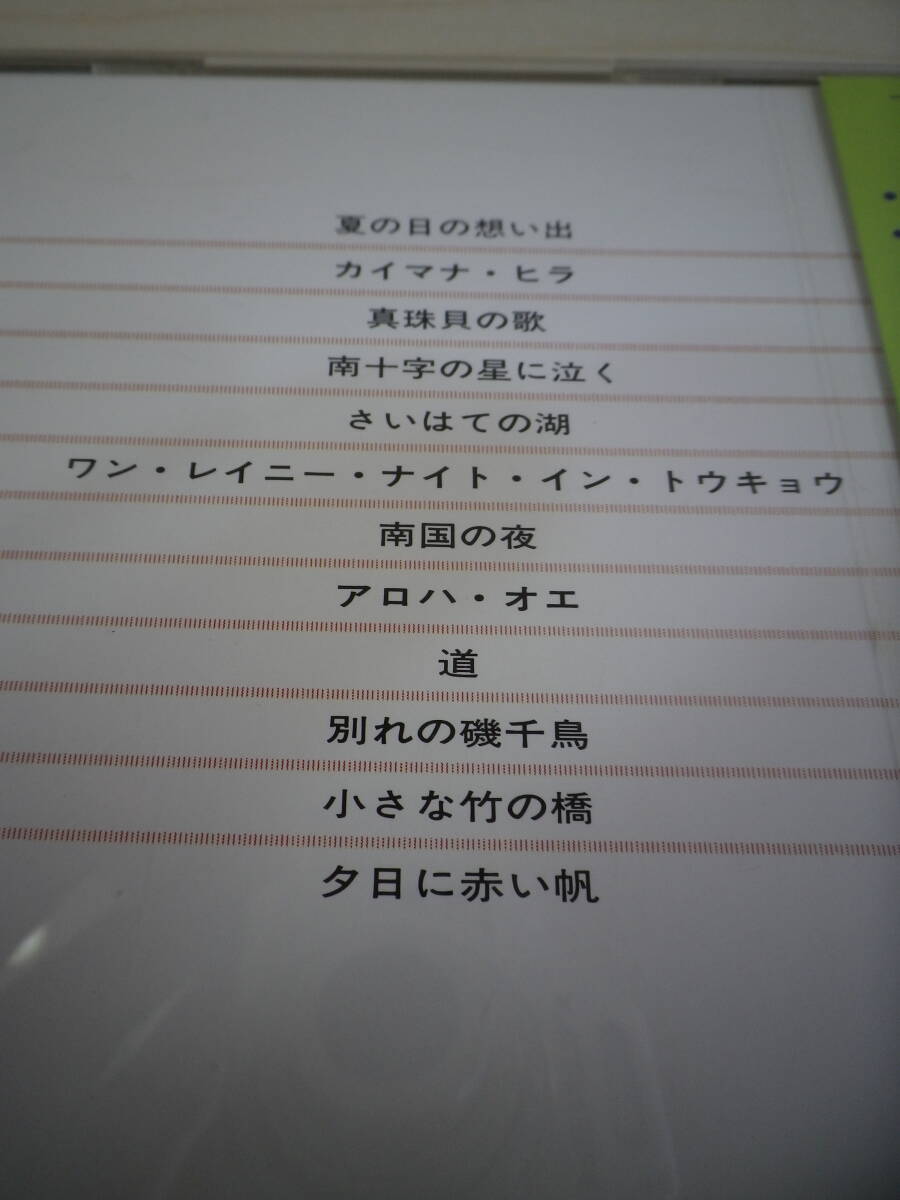 夏の日の想い出
カイマナ・ヒラ
真珠貝の歌
南十字の星に泣く
さいはての湖
ワン・レイニー・ナイト・イン・トウキョウ
南国の夜
アロハ・オエ
道
別れの磯千鳥
小さな竹の橋
夕日に赤い帆